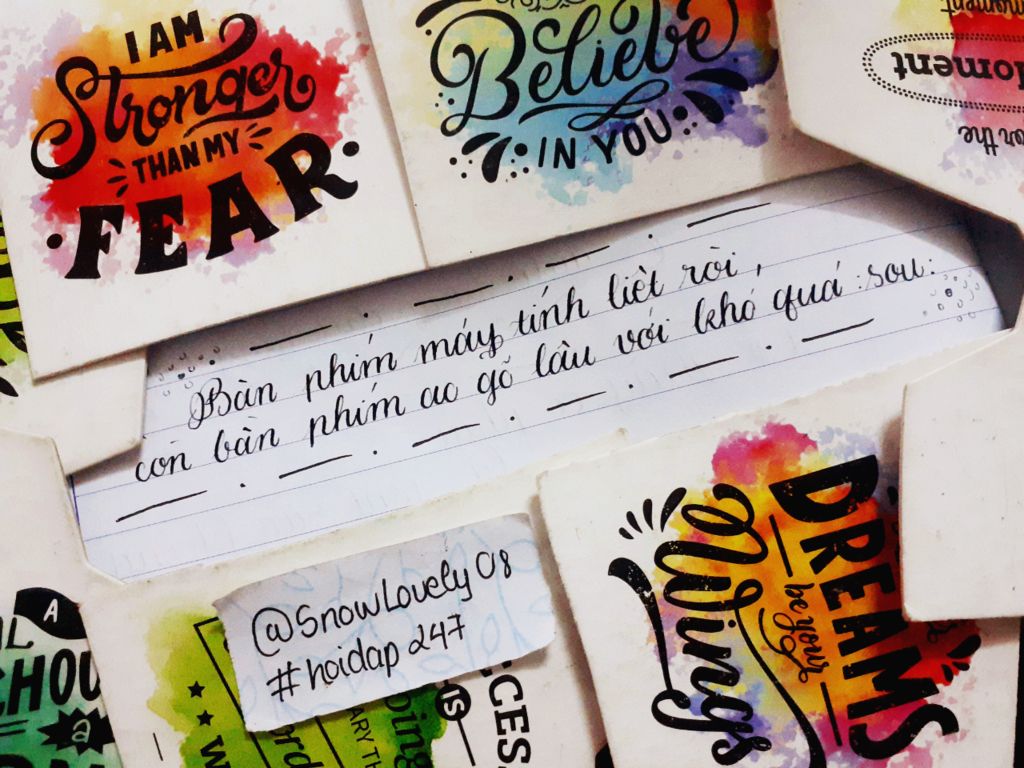 I AM
Stronger
THAN MY
FEAR
Believe
IN YOU
moment
Moment
for the
Bàn phím máy tính liệt rồi,
còn bàn phím ao gõ lâu với khó quá :sou:
@SnowLovely08
#hoidap247
DREAMS
be your
Wings
A
a